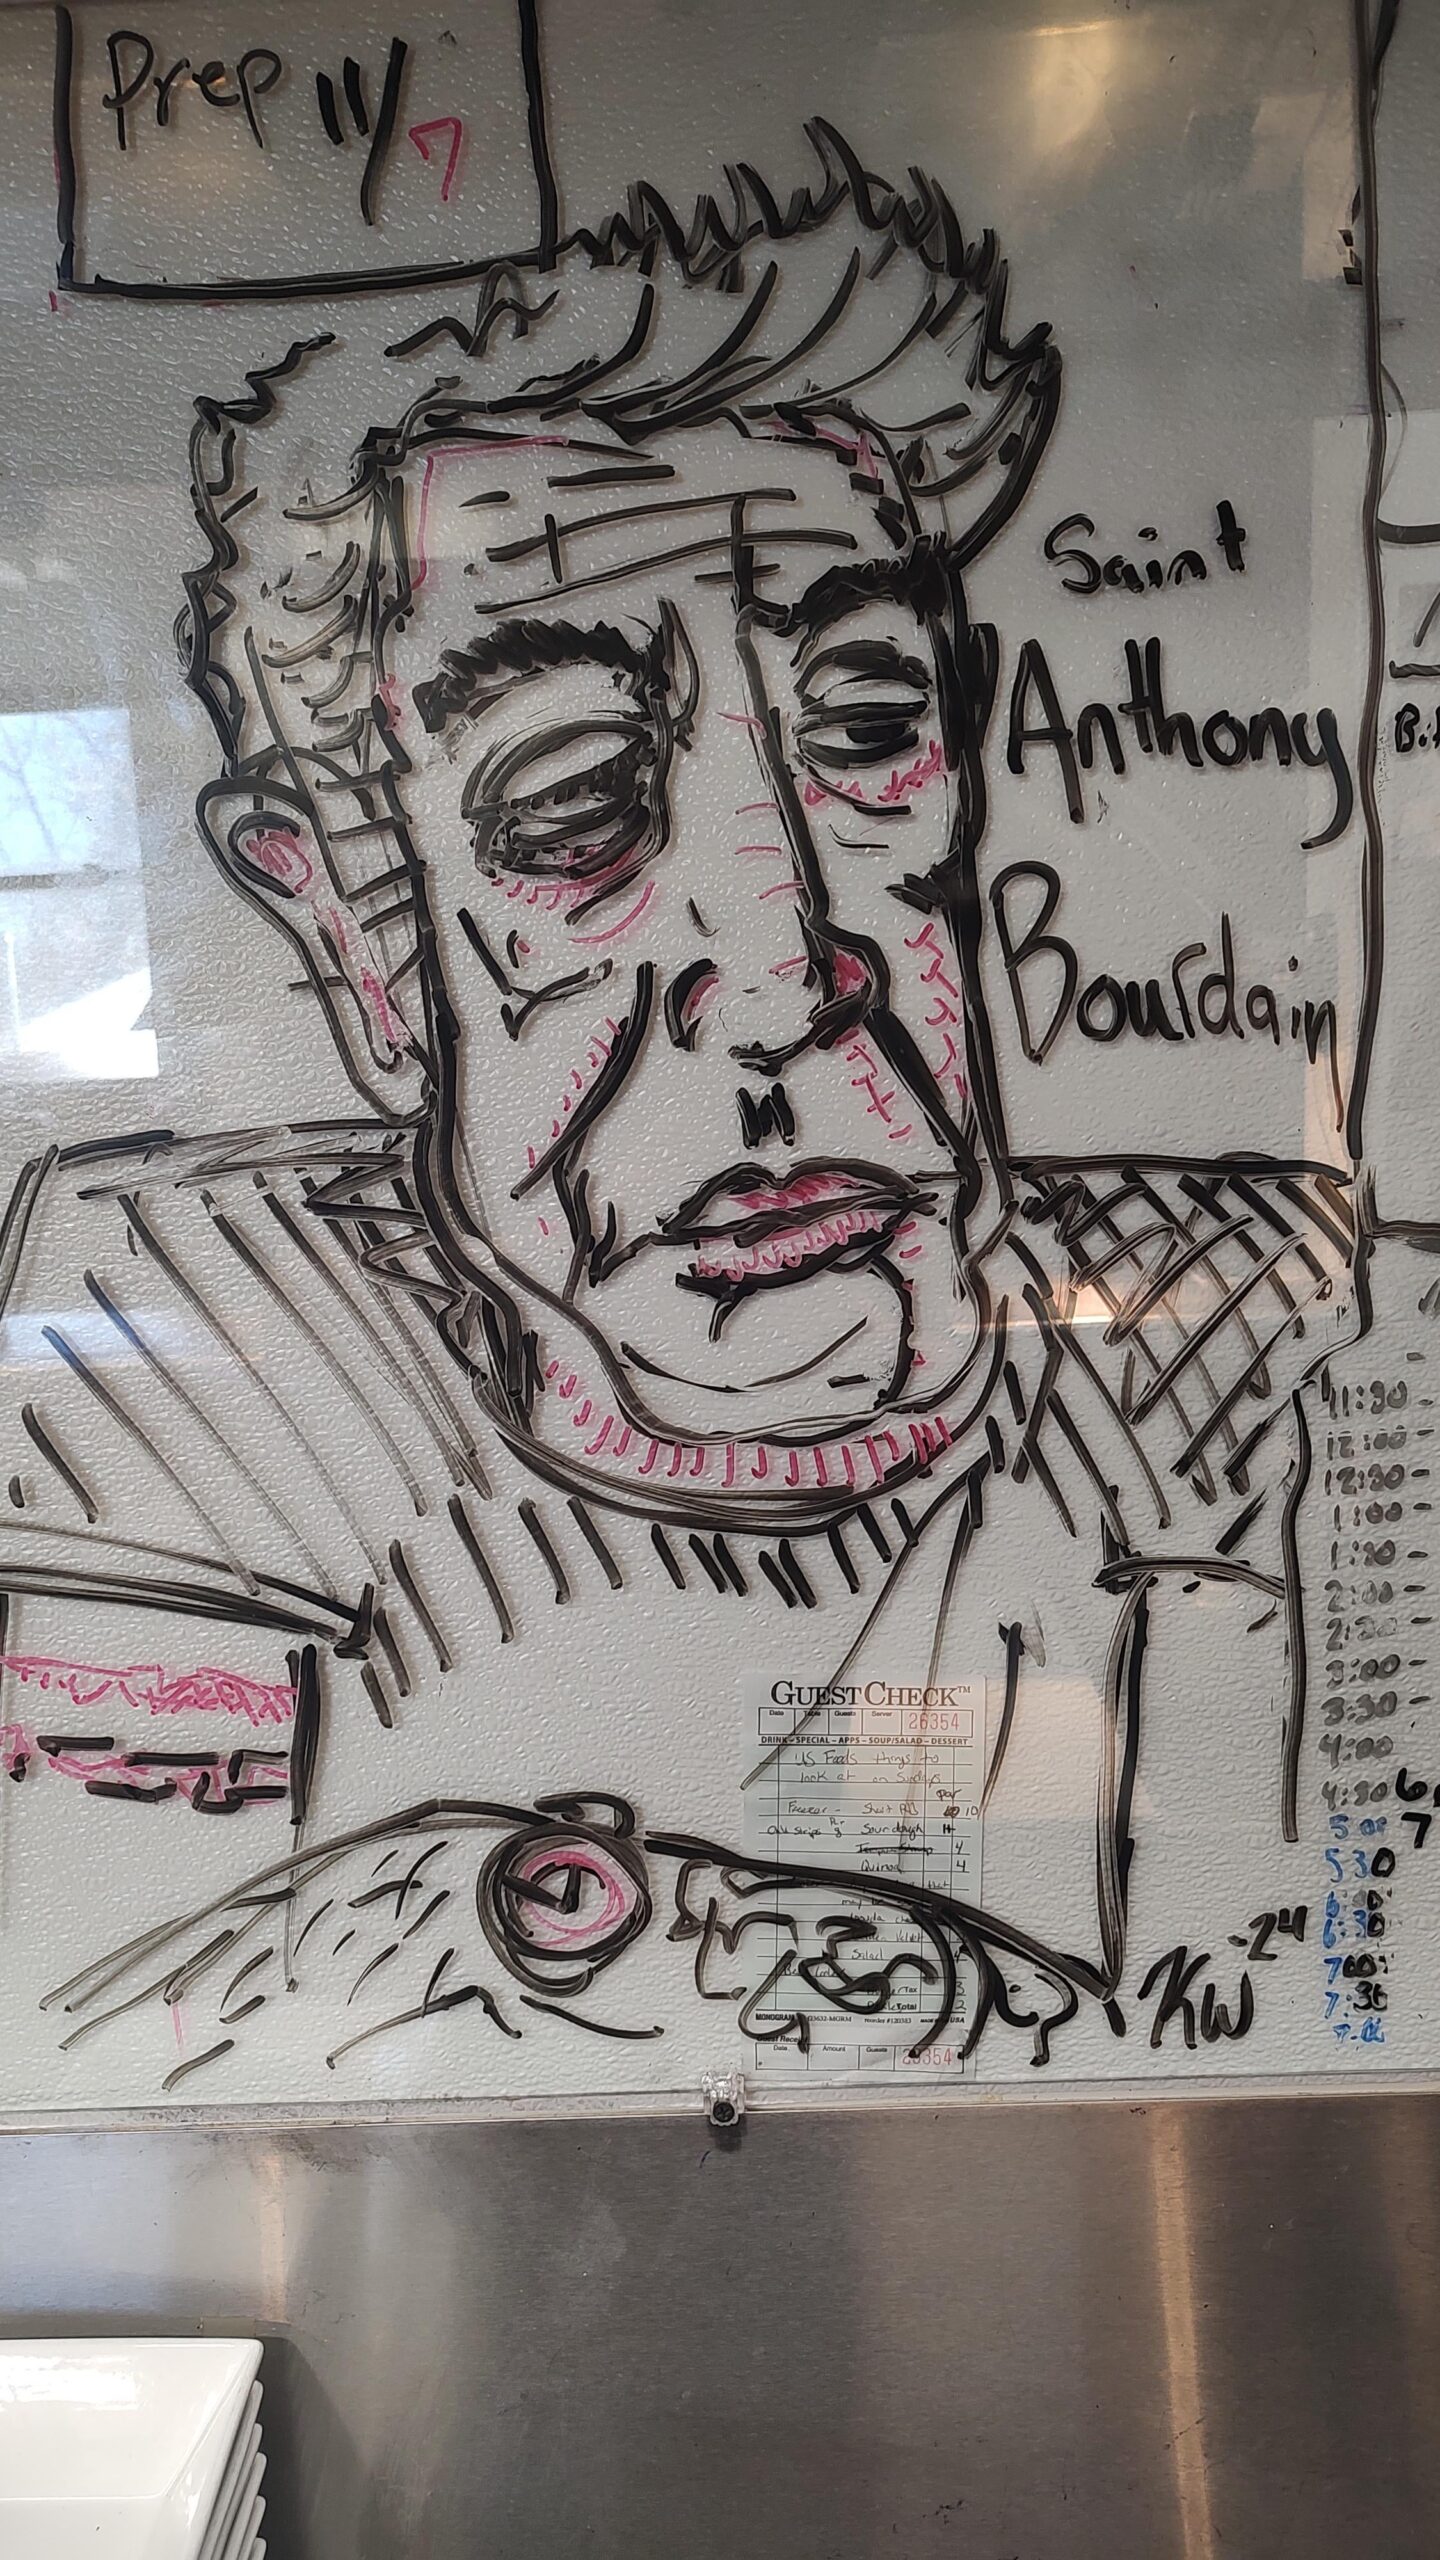 Prep 11/7
Saint
Anthony
Bourdain
11:30 -
12:00 -
12:30 -
1:00 -
1:30 -
2:00 -
2:30 -
3:00 -
3:30 -
4:00
4:30 6
5 or 7
5 30
6:30
7:00
7:30
GUEST CHECK™
Date Table Guests Server 26354
DRINK - SPECIAL - APPS - SOUP/SALAD - DESSERT
US Foods things to
look at on Sundays
par
Freezer - 10
Sourdough
4
Quinoa 4
Salad
Tax 3
Total 2
MONOGRAM G3632-MGRM reorder #120383 MADE IN USA
Guest Receipt
Date Amount Guests 26354
KW -24